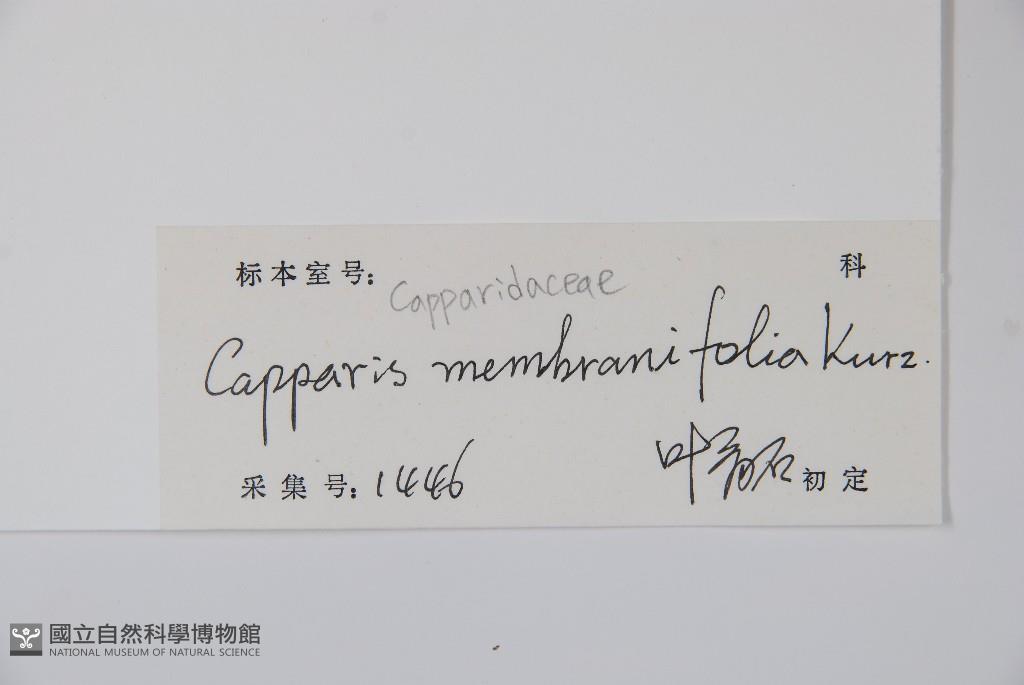 标本室号: 科
Capparidaceae
Capparis membranifolia Kurz.
采集号: 1446 叶 初定
國立自然科學博物館
NATIONAL MUSEUM OF NATURAL SCIENCE